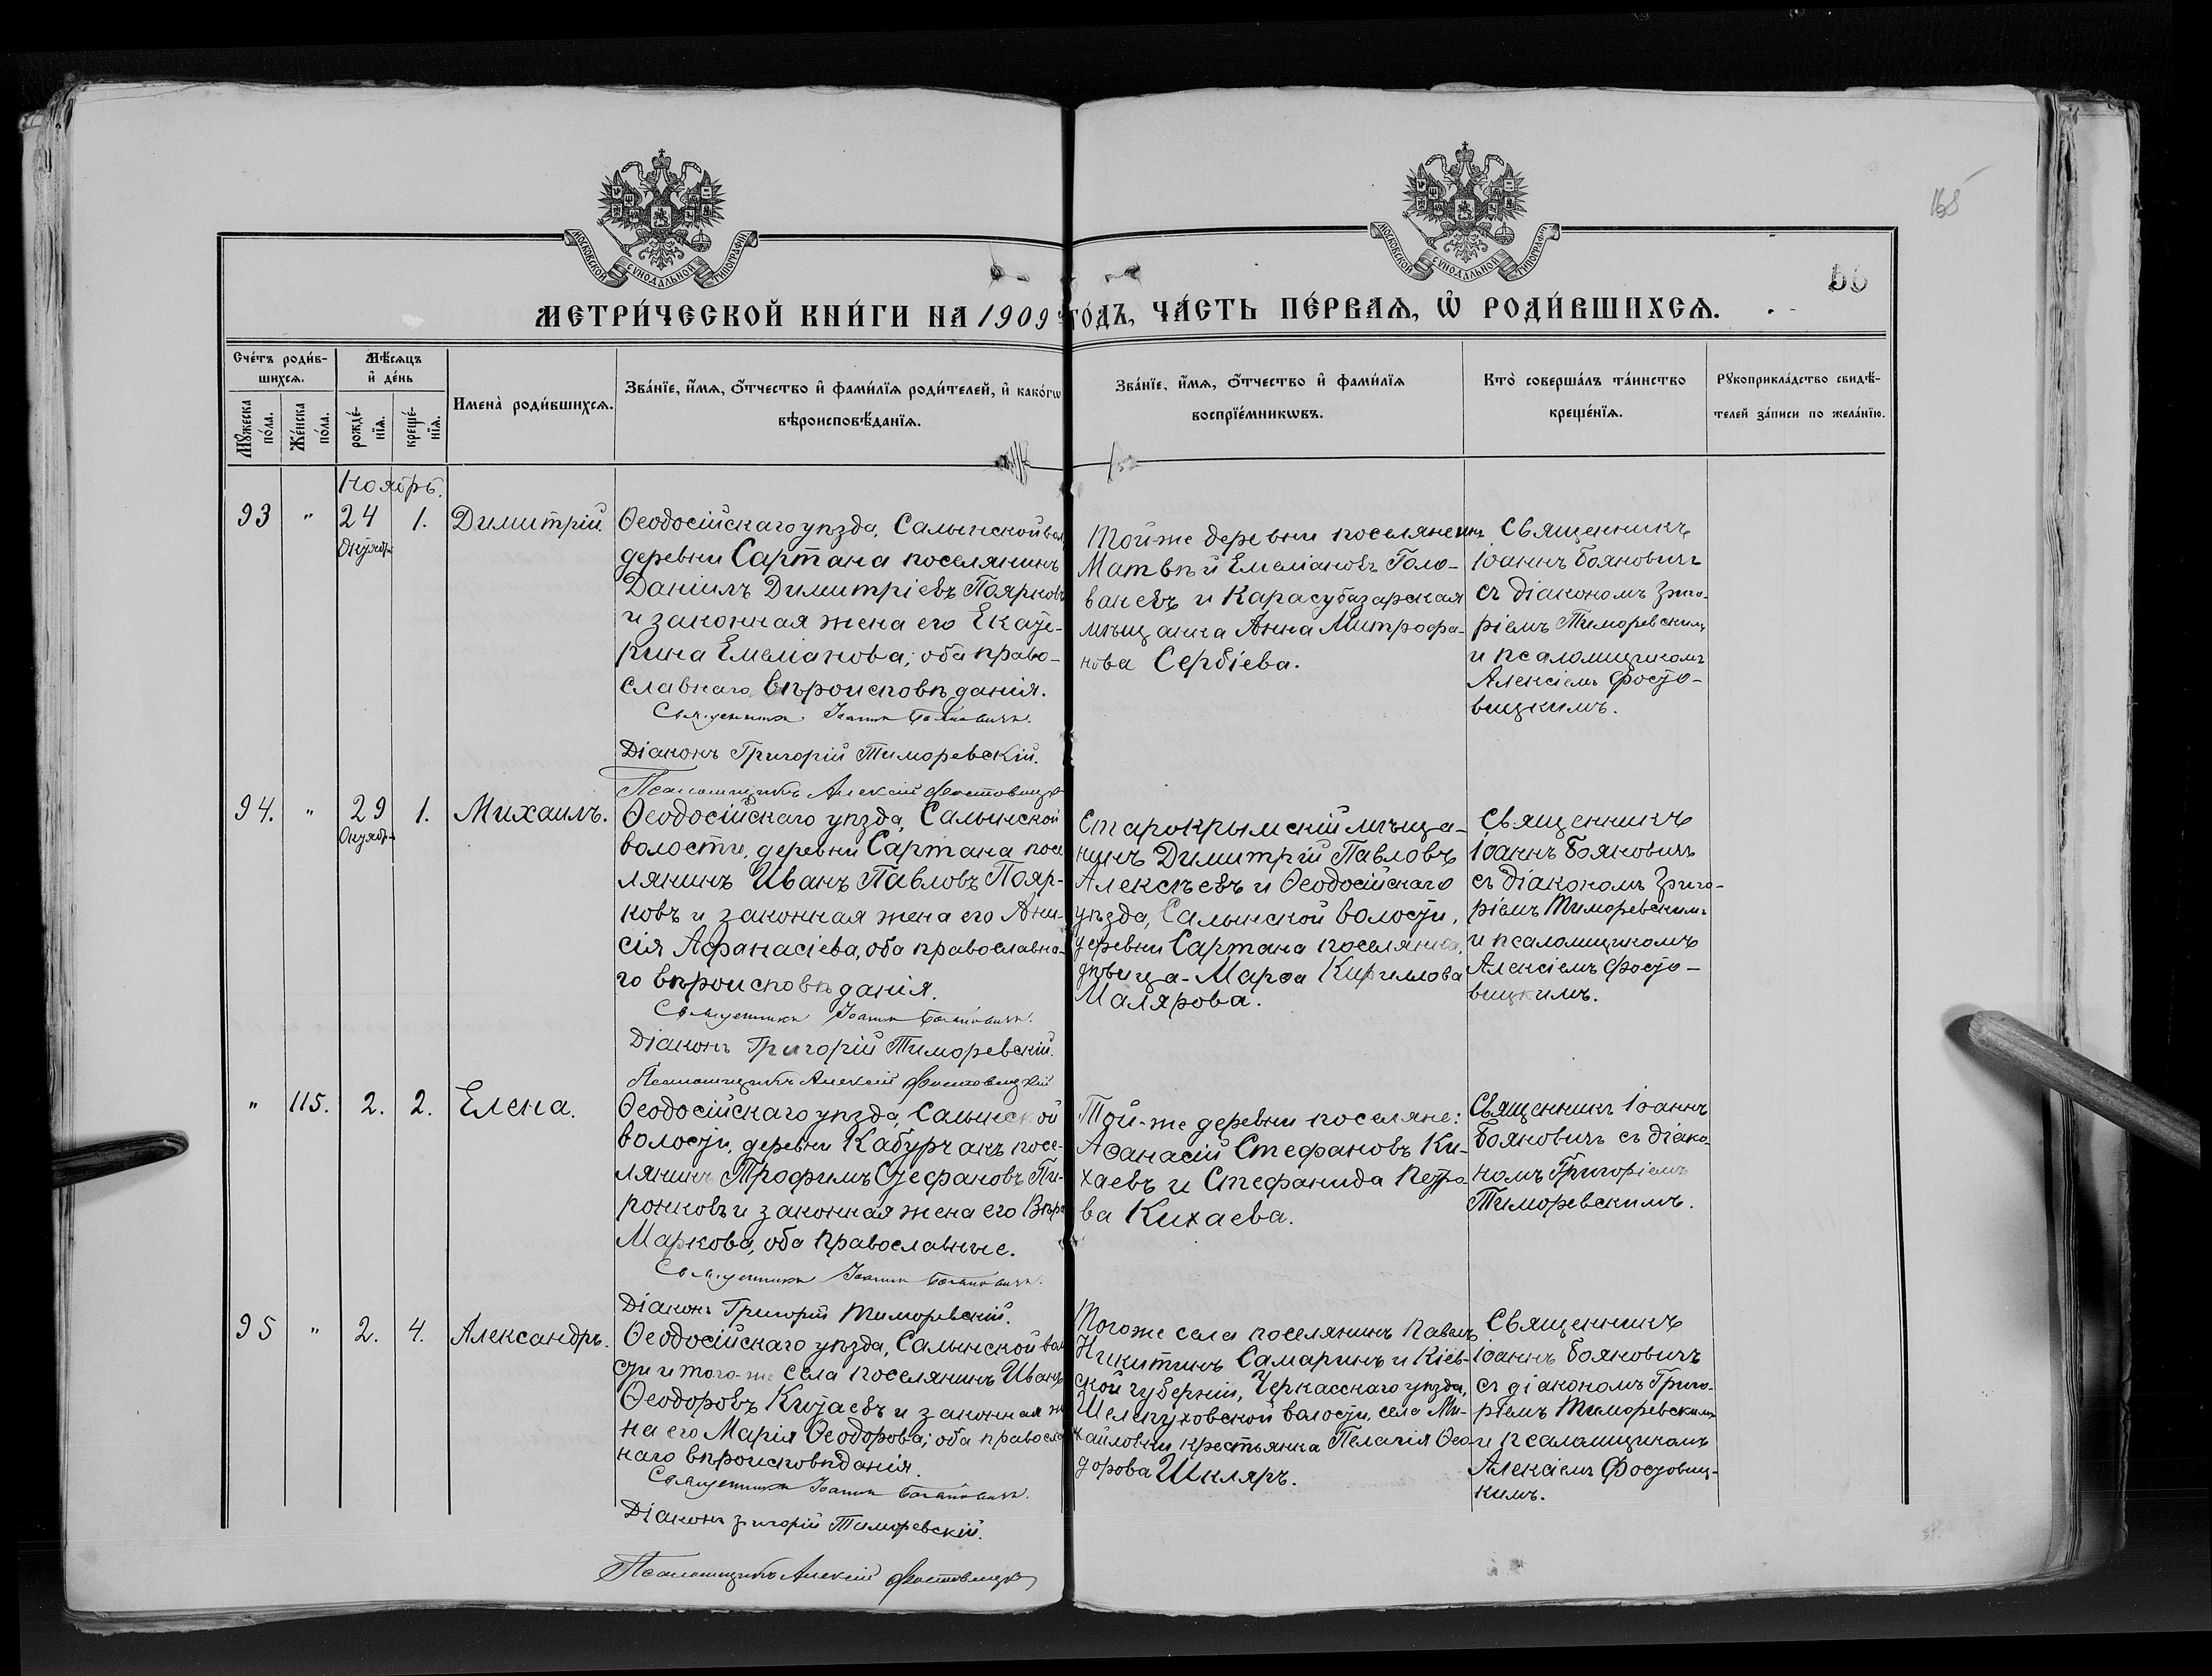 168
56
МОСКОВСКОЙ СѴНОДАЛЬНОЙ ТИПОГРАФІИ
МОСКОВСКОЙ СѴНОДАЛЬНОЙ ТИПОГРАФІИ
МЕТРИ́ЧЕСКОЙ КНИ́ГИ НА 1909 ГО́ДЪ, ЧА́СТЬ ПЕ́РВАѦ, Ѽ РОДИ́ВШИХСѦ.
Сче́тъ роди́в-
шихсѧ.
Мѣ́сѧцъ
и҆ де́нь
Мꙋ́жеска по́ла.
Же́нска по́ла.
рожде́-
нїѧ.
креще́-
нїѧ.
Имена̀ роди́вшихсѧ.
Зва́нїе, и҆́мѧ, ѻ҆́тчество и҆ фами́лїѧ роди́телей, и҆ како́гѡ
вѣроисповѣ́данїѧ.
Зва́нїе, и҆́мѧ, ѻ҆́тчество и҆ фами́лїѧ
воспрїе́мникѡвъ.
Кто̀ соверша́лъ та́инство
креще́нїѧ.
Рꙋкоприкла́дство свидѣ́-
телей за́писи по жела́нїю.
Ноябрь.
93 " 24 1. Димитрій.
Октябр.
Ѳеодосійскаго уѣзда, Салынской вол.
деревни Сартана поселянинъ
Даніилъ Димитріевъ Поярковъ
и законная жена его Екате-
рина Емеліанова; оба право-
славнаго вѣроисповѣданія.
Священникъ Іоаннъ Бояновичъ.
Діаконъ Григорій Тиморевскій.
Псаломщикъ Алексій Фостовицк
Той же деревни поселянинъ
Матвѣй Емеліановъ Голо-
ваневъ и Карасубазарская
мѣщанка Анна Митрофа-
нова Сербіева.
Священникъ
Іоаннъ Бояновичъ
съ діакономъ Григо-
ріемъ Тиморевскимъ
и псаломщикомъ
Алексіемъ Фосто-
вицкимъ.
94. " 29 1. Михаилъ.
Октябр.
Ѳеодосійскаго уѣзда, Салынской
волости, деревни Сартана посе
лянинъ Иванъ Павловъ Пояр-
ковъ и законная жена его Ани-
сія Аѳанасіева, оба православна-
го вѣроисповѣданія.
Священникъ Іоаннъ Бояновичъ.
Діаконъ Григорій Тиморевскій.
Псаломщикъ Алексій Фостовицкій
Старокрымскій мѣща-
нинъ Димитрій Павловъ
Алексѣевъ и Ѳеодосійскаго
уѣзда, Салынской волости,
деревни Сартана поселянка,
дѣвица - Марѳа Кириллова
Малярова.
Священникъ
Іоаннъ Бояновичъ
съ діакономъ Григо-
ріемъ Тиморевскимъ
и псаломщикомъ
Алексіемъ Фосто-
вицкимъ.
" 115. 2. 2. Елена.
Ѳеодосійскаго уѣзда, Салынской
волости, деревни Кабурчакъ посе-
лянинъ Трофимъ Стефановъ Пи-
ронковъ и законная жена его Вѣра
Маркова, оба православные.
Священникъ Іоаннъ Бояновичъ.
Діаконъ Григорій Тиморевскій.
Той-же деревни поселяне:
Аѳанасій Стефановъ Ки-
хаевъ и Стефанида Петро
ва Кихаева.
Священникъ Іоаннъ
Бояновичъ съ діако-
номъ Григоріемъ
Тиморевскимъ.
95 " 2. 4. Александръ.
Ѳеодосійскаго уѣзда, Салынской вол
сти и того-же села поселянинъ Иванъ
Ѳеодоровъ Китаевъ и законная же
на его Марія Ѳеодорова; оба правосла
наго вѣроисповѣданія.
Священникъ Іоаннъ Бояновичъ.
Діаконъ Григорій Тиморевскій.
Псаломщикъ Алексій Фостовицк
Того же села поселянинъ Павелъ
Никитинъ Самаринъ и Кіев-
ской губерніи, Черкасскаго уѣзда,
Шелепуховской волости, села Ми-
хайловки крестьянка Пелагія Ѳео-
дорова Шкляръ.
Священникъ
Іоаннъ Бояновичъ
съ діакономъ Григо-
ріемъ Тиморевскимъ
и псаломщикомъ
Алексіемъ Фостовиц-
кимъ.